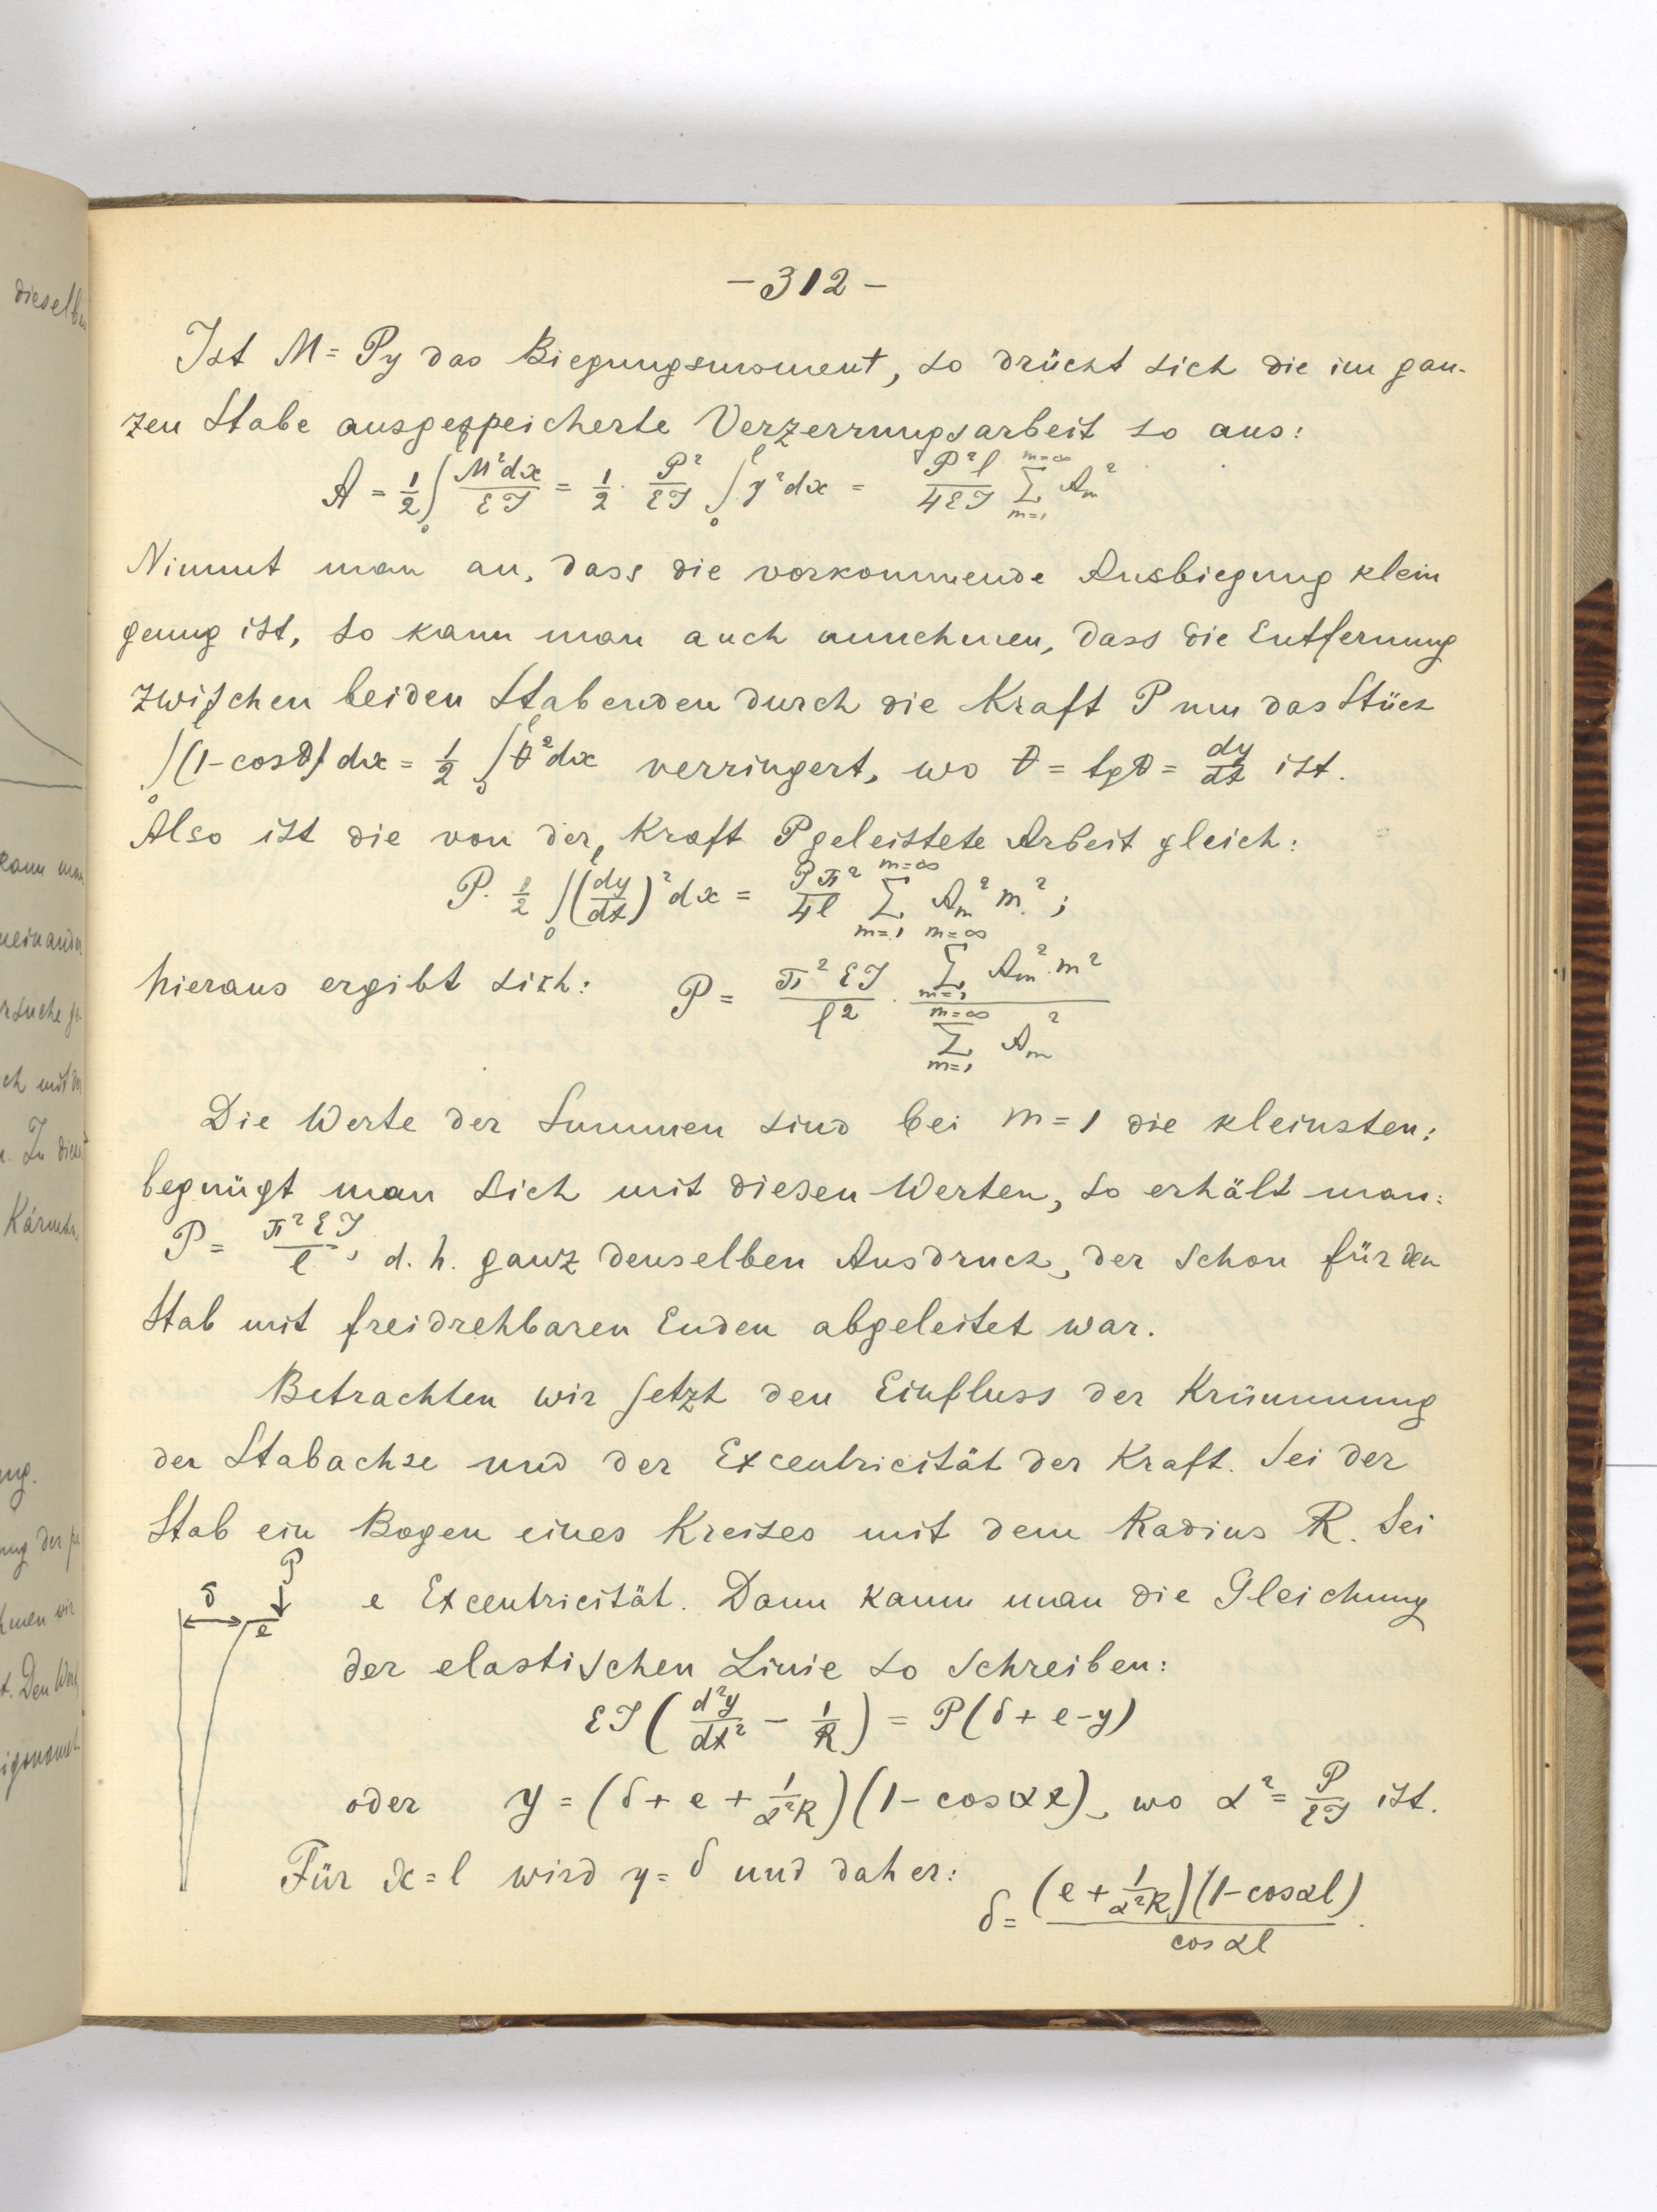 dieselben
kann man
neinander
rsuche ge-
ch mit
n. In
Kármán,
ung.
ung der
hmen wir
t. Den
-312-
Ist M = Py das Biegungsmoment, so drückt sich die im gan-
zen Stabe ausgespeicherte Verzerrungsarbeit so aus:
A = 1/2 ∫₀ M²dx/EJ = 1/2 · P²/EJ ∫₀ˡ y²dx = P²l/4EJ Σ_{m=1}^{m=∞} A_m²
Nimmt man an, dass die vorkommende Ausbiegung klein
genug ist, so kann man auch annehmen, dass die Entfernung
zwischen beiden Stabenden durch die Kraft P um das Stück
∫₀ˡ (1-cosϑ) dx = 1/2 ∫₀ˡ ϑ²dx verringert, wo ϑ = tgϑ = dy/dx ist.
Also ist die von der Kraft P geleistete Arbeit gleich:
P · 1/2 ∫₀ˡ (dy/dx)² dx = Pπ²/4l Σ_{m=1}^{m=∞} A_m² m²;
hieraus ergibt sich: P = π²EJ/l² · Σ_{m=1}^{m=∞} A_m² · m² / Σ_{m=1}^{m=∞} A_m²
Die Werte der Summen sind bei m = 1 die kleinsten;
begnügt man sich mit diesen Werten, so erhält man:
P = π²EJ/l, d. h. ganz denselben Ausdruck, der schon für den
Stab mit freidrehbaren Enden abgeleitet war.
Betrachten wir jetzt den Einfluss der Krümmung
der Stabachse und der Excentricität der Kraft. Sei der
Stab ein Bogen eines Kreises mit dem Radius R. Sei
P
δ
e
e Excentricität. Dann kann man die Gleichung
der elastischen Linie so schreiben:
EJ (d²y/dx² - 1/R) = P(δ + e - y)
oder y = (δ + e + 1/α²R)(1 - cosαx), wo α² = P/EJ ist.
Für x = l wird y = δ und daher:
δ = (e + 1/α²R)(1 - cosαl) / cos αl.